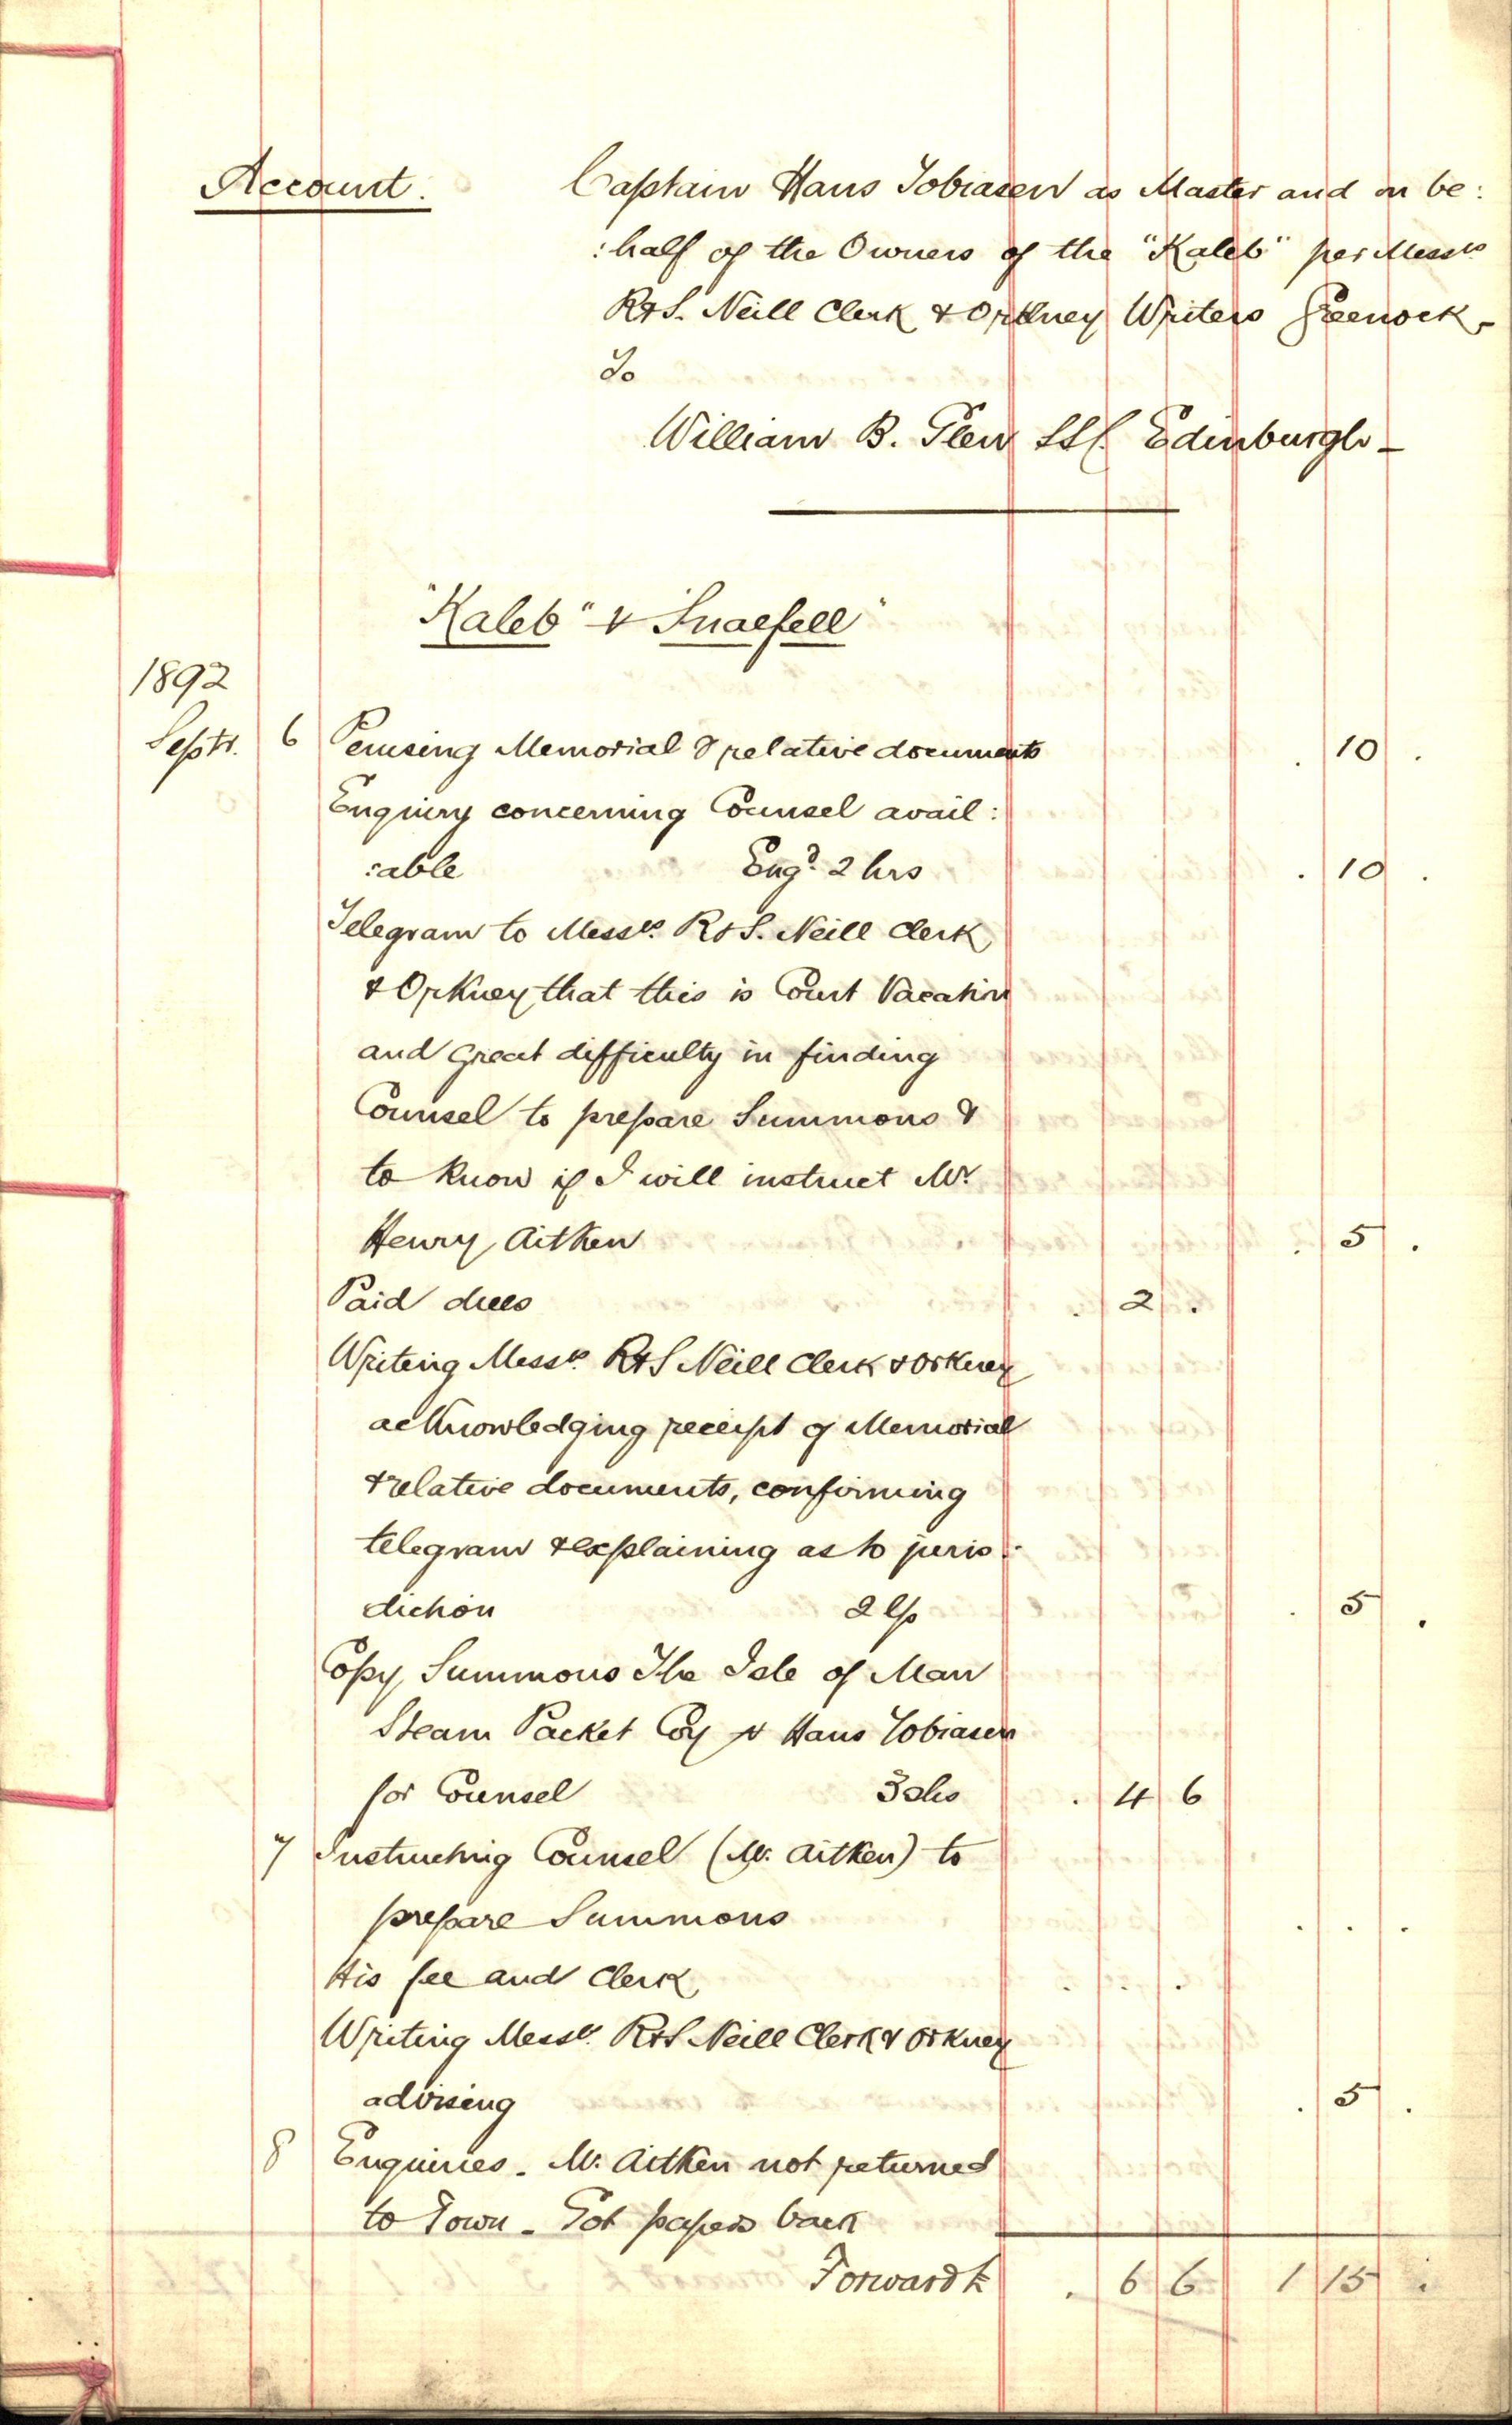 Account. Captain Hans Tobiasen as Master and on be:
:half of the Owners of the "Kaleb" per Messrs
R & S. Neill Clerk & Orkney Writers Greenock -
To
William B. Glen SSC Edinburgh -
"Kaleb" v "Snaefell"
1892
Septr. 6 Perusing Memorial & relative documents . 10 .
Enquiry concerning Counsel avail:
:able Engd. 2 hrs . 10 .
Telegram to Messrs. R & S. Neill Clerk
& Orkney that this is Court Vacation
and great difficulty in finding
Counsel to prepare Summons &
to know if I will instruct Mr
Henry Aitken . 5 .
Paid dues . 2 .
Writing Messrs. R & S Neill Clerk & Orkney
acknowledging receipt of Memorial
& relative documents, confirming
telegram & explaining as to juris:
diction 2 . 5 .
Copy Summons The Isle of Man
Steam Packet Coy v Hans Tobiasen
for Counsel 3 shs . 4 6
7 Instructing Counsel (Mr. Aitken) to
prepare Summons . . .
His fee and Clerk . . .
Writing Messrs. R & S Neill Clerk & Orkney
advising . 5 .
8 Enquiries. Mr. Aitken not returned
to Town - Got papers back
Forward £ . 6 6 1 15 .